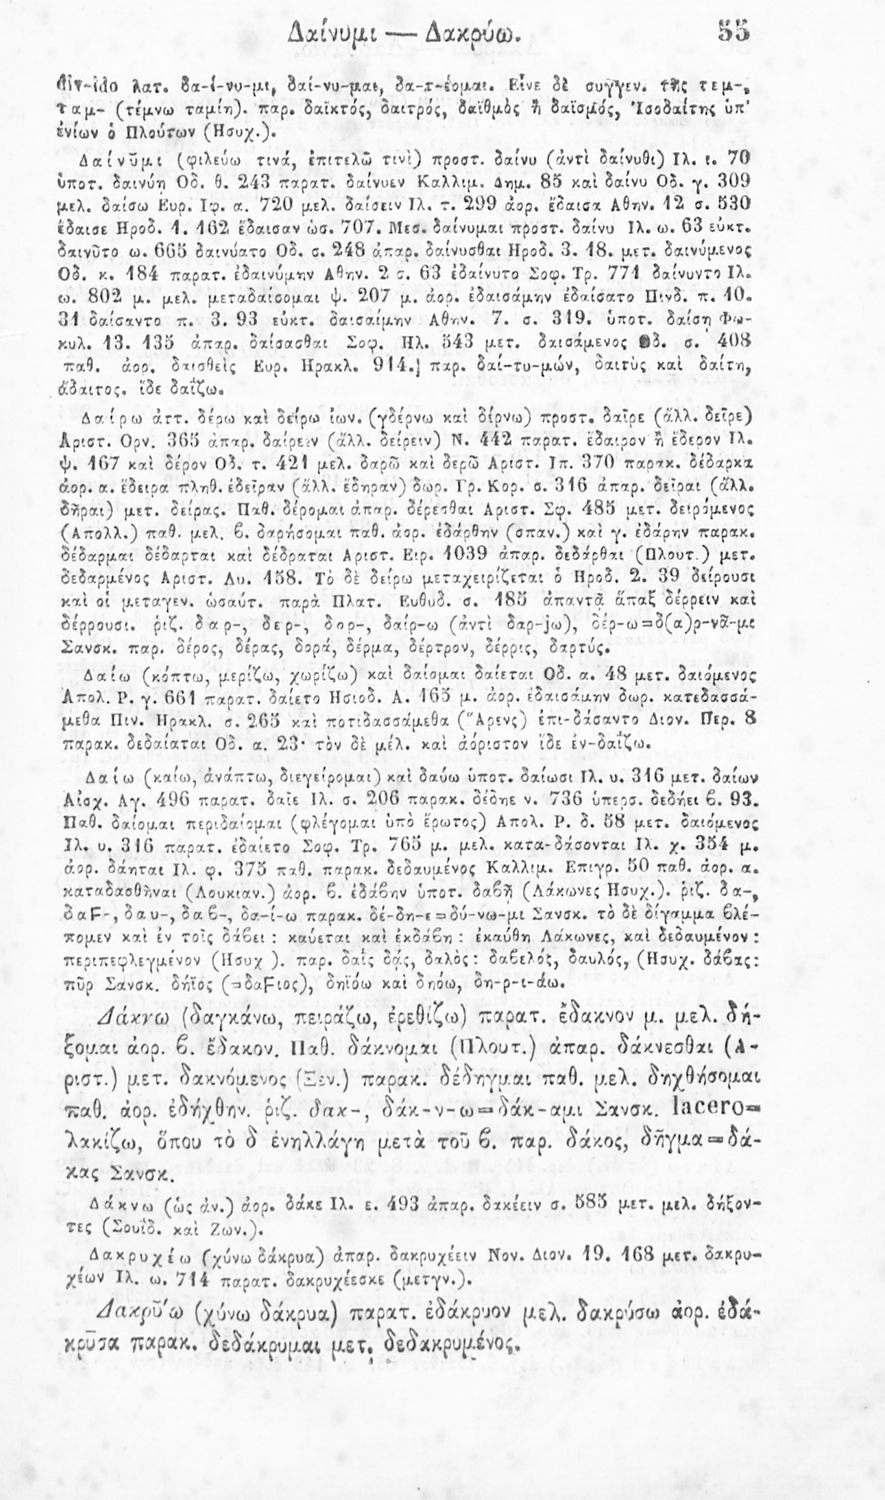 Δαίνυμι — Δακρύω. 55
div-ido λατ. δα-ί-νυ-μι, δαί-νυ-μαι, δα-τ-έομαι. Εἶνε δὲ συγγεν. τῆς τεμ-,
ταμ- (τέμνω ταμίη). παρ. δαϊκτός, δαιτρός, δαϊθμὸς ἢ δαϊσμός, Ἰσοδαίτης ὑπ'
ἐνίων ὁ Πλούτων (Ησυχ.).
Δαίνῡμι (φιλεύω τινά, ἐπιτελῶ τινὶ) προστ. δαίνυ (ἀντὶ δαίνυθι) Ιλ. ι. 70
ὑποτ. δαινύῃ Οδ. θ. 243 παρατ. δαίνυεν Καλλιμ. Δημ. 85 καὶ δαίνυ Οδ. γ. 309
μελ. δαίσω Ευρ. Ιφ. α. 720 μελ. δαίσειν Ιλ. τ. 299 ἀορ. ἔδαισα Αθην. 12 σ. 530
ἔδαισε Ηροδ. 1. 162 ἔδαισαν ὡσ. 707. Μεσ. δαίνυμαι προστ. δαίνυ Ιλ. ω. 63 εὐκτ.
δαινῦτο ω. 665 δαινύατο Οδ. σ. 248 ἀπαρ. δαίνυσθαι Ηροδ. 3. 18. μετ. δαινύμενος
Οδ. κ. 184 παρατ. ἐδαινύμην Αθην. 2 σ. 63 ἐδαίνυτο Σοφ. Τρ. 771 δαίνυντο Ιλ.
ω. 802 μ. μελ. μεταδαίσομαι ψ. 207 μ. ἀορ. ἐδαισάμην ἐδαίσατο Πινδ. π. 10.
31 δαίσαντο π. 3. 93 εὐκτ. δαισαίμην Αθην. 7. σ. 319. ὑποτ. δαίσῃ Φω-
κυλ. 13. 135 ἀπαρ. δαίσασθαι Σοφ. Ηλ. 543 μετ. δαισάμενος Οδ. σ. 408
παθ. ἀορ. δαισθεὶς Ευρ. Ηρακλ. 914. παρ. δαί-τυ-μών, δαιτὺς καὶ δαίτη,
ἄδαιτος. ἴδε δαΐζω.
Δαίρω ἀττ. δέρω καὶ δείρω ἰων. (γδέρνω καὶ δίρνω) προστ. δαῖρε (ἄλλ. δεῖρε)
Αριστ. Ορν. 365 ἀπαρ. δαίρειν (ἄλλ. δείρειν) Ν. 442 παρατ. ἔδαιρον ἢ ἔδερον Ιλ.
ψ. 167 καὶ δέρον Οδ. τ. 421 μελ. δαρῶ καὶ δερῶ Αριστ. Ιπ. 370 παρακ. δέδαρκα
ἀορ. α. ἔδειρα πληθ. ἐδεῖραν (ἄλλ. ἔδηραν) δωρ. Γρ. Κορ. σ. 316 ἀπαρ. δεῖραι (ἄλλ.
δῆραι) μετ. δείρας. Παθ. δέρομαι ἀπαρ. δέρεσθαι Αριστ. Σφ. 485 μετ. δειρόμενος
(Απολλ.) παθ. μελ. β. δαρήσομαι παθ. ἀορ. ἐδάρθην (σπαν.) καὶ γ. ἐδάρην παρακ.
δέδαρμαι δέδαρται καὶ δέδραται Αριστ. Ειρ. 1039 ἀπαρ. δεδάρθαι (Πλουτ.) μετ.
δεδαρμένος Αριστ. Λυ. 158. Τὸ δὲ δείρω μεταχειρίζεται ὁ Ηροδ. 2. 39 δείρουσι
καὶ οἱ μεταγεν. ὡσαύτ. παρὰ Πλατ. Ευθυδ. σ. 185 ἀπαντᾷ ἅπαξ δέρρειν καὶ
δέρρουσι. ῥιζ. δαρ-, δερ-, δορ-, δαίρ-ω (ἀντὶ δαρ-jω), δέρ-ω=δ(α)ρ-νᾶ-μι
Σανσκ. παρ. δέρος, δέρας, δορά, δέρμα, δέρτρον, δέρρις, δαρτύς.
Δαίω (κόπτω, μερίζω, χωρίζω) καὶ δαίομαι δαίεται Οδ. α. 48 μετ. δαιόμενος
Απολ. Ρ. γ. 661 παρατ. δαίετο Ησιοδ. Α. 165 μ. ἀορ. ἐδαισάμην δωρ. κατεδασσά-
μεθα Πιν. Ηρακλ. σ. 265 καὶ ποτιδασσάμεθα (Ἄρενς) ἐπι-δάσαντο Διον. Περ. 8
παρακ. δεδαίαται Οδ. α. 23· τὸν δὲ μέλ. καὶ ἀόριστον ἴδε ἐν-δαΐζω.
Δαίω (καίω, ἀνάπτω, διεγείρομαι) καὶ δαύω ὑποτ. δαίωσι Ιλ. υ. 316 μετ. δαίων
Αἰσχ. Αγ. 496 παρατ. δαῖε Ιλ. σ. 206 παρακ. δέδηε ν. 736 ὑπερσ. δεδήει β. 93.
Παθ. δαίομαι περιδαίομαι (φλέγομαι ὑπὸ ἔρωτος) Απολ. Ρ. δ. 58 μετ. δαιόμενος
Ιλ. υ. 316 παρατ. ἐδαίετο Σοφ. Τρ. 765 μ. μελ. κατα-δάσονται Ιλ. χ. 354 μ.
ἀορ. δάηται Ιλ. φ. 375 παθ. παρακ. δεδαυμένος Καλλιμ. Επιγρ. 50 παθ. ἀορ. α.
καταδασθῆναι (Λουκιαν.) ἀορ. β. ἐδάβην ὑποτ. δαβῇ (Λάκωνες Ησυχ.). ῥιζ. δα-,
δαϜ-, δαυ-, δαβ-, δα-ί-ω παρακ. δέ-δη-ε=δύ-νω-μι Σανσκ. τὸ δὲ δίγαμμα βλέ-
πομεν καὶ ἐν τοῖς δάβει : καύεται καὶ ἐκδάβη : ἐκαύθη Λάκωνες, καὶ δεδαυμένον :
περιπεφλεγμένον (Ησυχ ). παρ. δαΐς δᾴς, δαλὸς : δαβελός, δαυλός, (Ησυχ. δάβας:
πῦρ Σανσκ. δήϊος (=δαϜιος), δηϊόω καὶ δῃόω, δη-ρ-ι-άω.
Δάκνω (δαγκάνω, πειράζω, ἐρεθίζω) παρατ. ἔδακνον μ. μελ. δή-
ξομαι ἀορ. β. ἔδακον. Παθ. δάκνομαι (Πλουτ.) ἀπαρ. δάκνεσθαι (Α-
ριστ.) μετ. δακνόμενος (Ξεν.) παρακ. δέδηγμαι παθ. μελ. δηχθήσομαι
παθ. ἀορ. ἐδήχθην. ῥιζ. δακ-, δάκ-ν-ω=δάκ-αμι Σανσκ. lacero=
λακίζω, ὅπου τὸ δ ἐνηλλάγη μετὰ τοῦ β. παρ. δάκος, δῆγμα=δά-
κας Σανσκ.
Δάκνω (ὡς ἀν.) ἀορ. δάκε Ιλ. ε. 493 ἀπαρ. δακέειν σ. 585 μετ. μελ. δήξον-
τες (Σουΐδ. καὶ Ζων.).
Δακρυχέω (χύνω δάκρυα) ἀπαρ. δακρυχέειν Νον. Διον. 19. 168 μετ. δακρυ-
χέων Ιλ. ω. 714 παρατ. δακρυχέεσκε (μετγν.).
Δακρῡ́ω (χύνω δάκρυα) παρατ. ἐδάκρυον μελ. δακρύσω ἀορ. ἐδά-
κρῡσα παρακ. δεδάκρυμαι μετ. δεδακρυμένος.